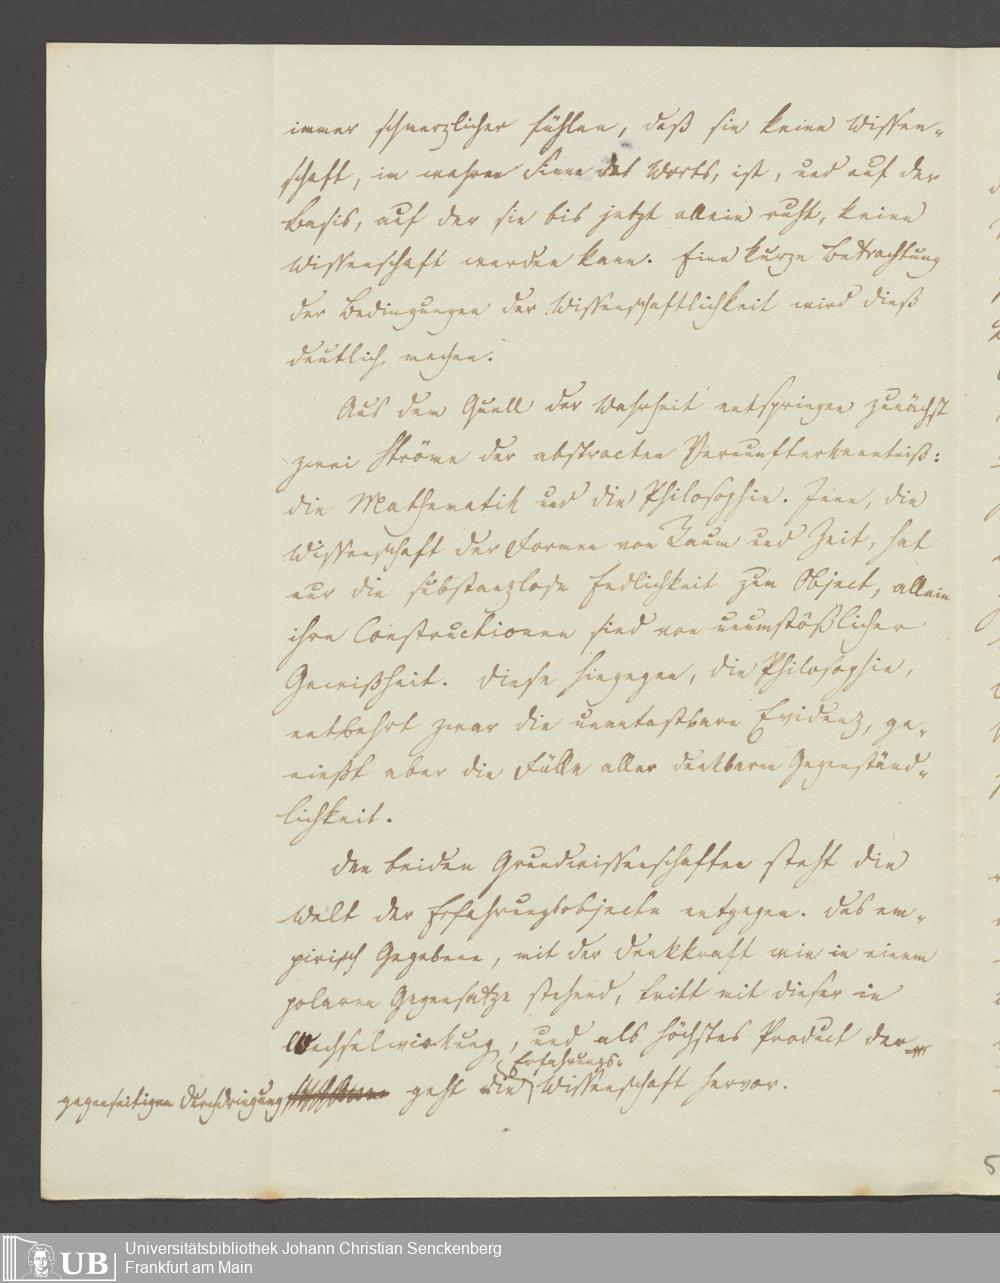 immer schmerzlicher fühlen, daß sie keine Wissen-
schaft, im wahren Sinne des Worts, ist, und auf der
Basis, auf der sie bis jetzt allein ruht, keine
Wissenschaft werden kann. Eine kurze Betrachtung
der Bedingungen der Wissenschaftlichkeit wird dieß
deutlich machen.
Aus dem Quell der Wahrheit entspringen zunächst
zwei Ströme der abstracten Vernunfterkenntniß:
die Mathematik und die Philosophie. Jene, die
Wissenschaft der Formen von Raum und Zeit, hat
nur die substanzlose Endlichkeit zum Object, allein
ihre Constructionen sind von unumstößlicher
Gewißheit. Diese hingegen, die Philosophie,
entbehrt zwar die unantastbare Evidenz, ge-
nießt aber die Fülle aller denkbaren Gegenständ-
lichkeit.
Den beiden Grundwissenschaften steht die
Welt der Erfahrungsobjecte entgegen. Das em-
pirisch Gegebene, mit der Denkkraft wie in einem
polaren Gegensatze stehend, tritt mit dieser in
Wechselwirkung, und als höchstes Product der
Erfahrungs-
gegenseitigen Durchdringung geht die Wissenschaft hervor.
5
UB Universitätsbibliothek Johann Christian Senckenberg
Frankfurt am Main